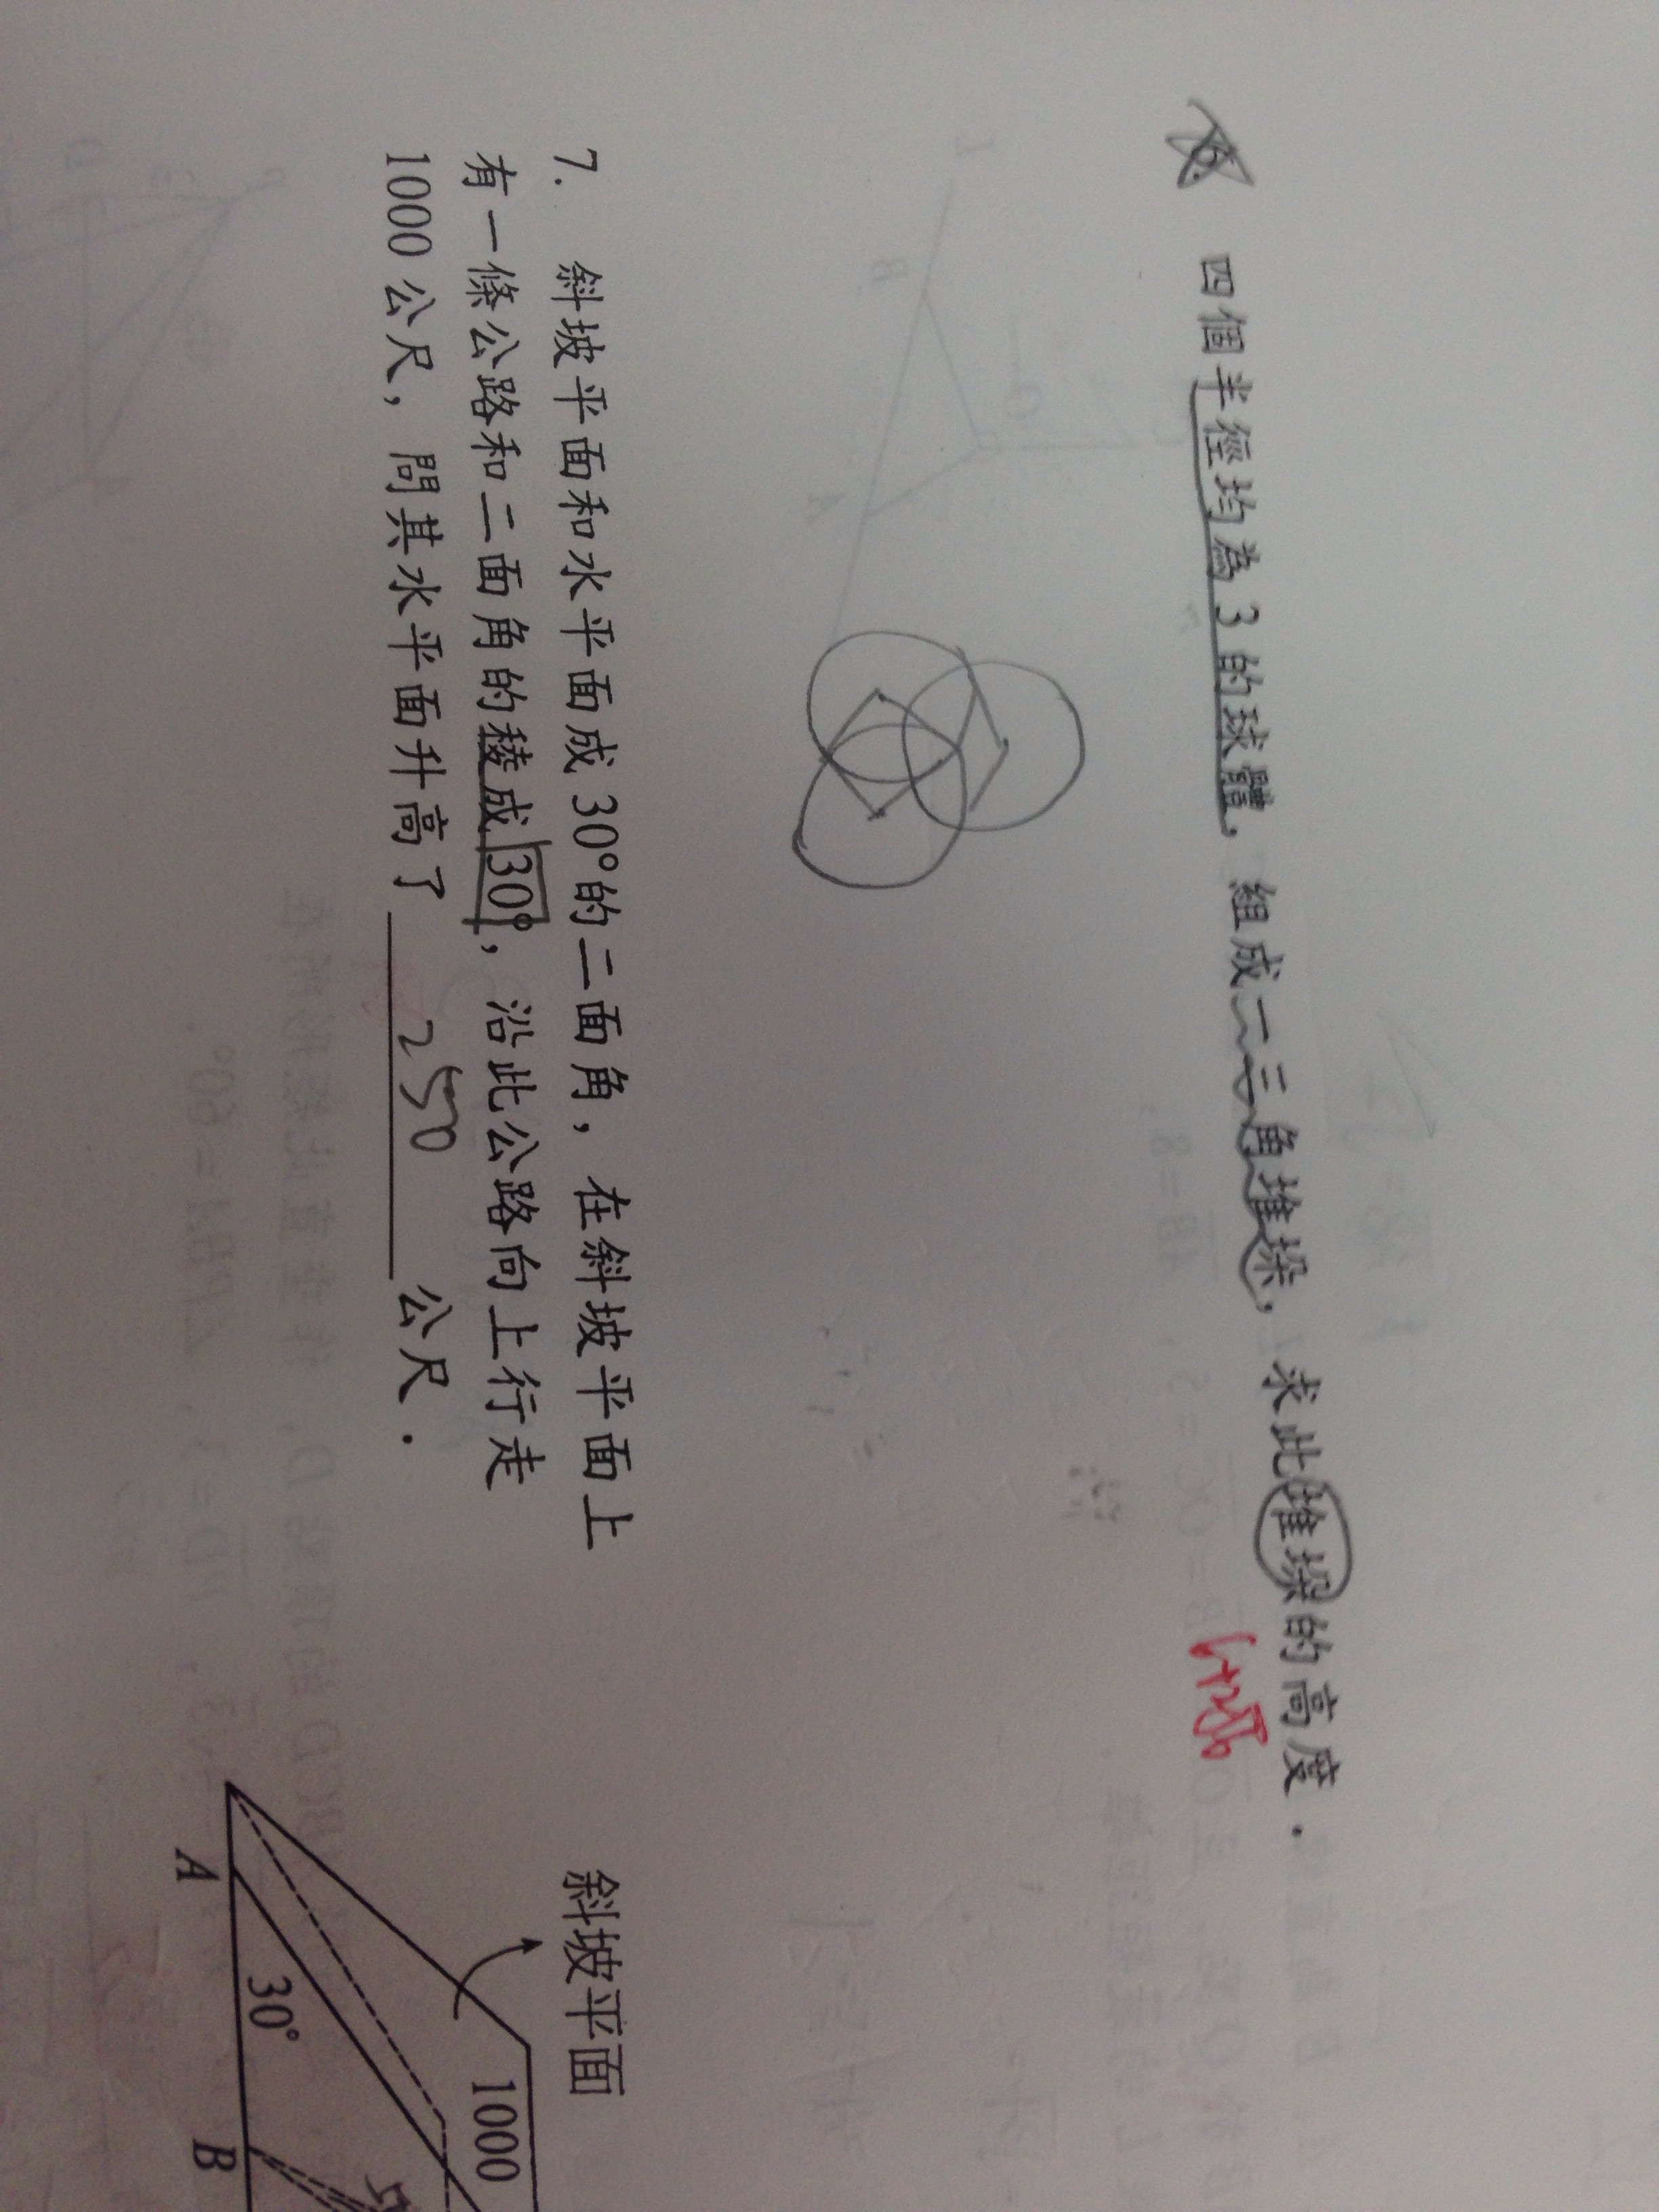 6. 四個半徑均為 3 的球體，組成一三角堆垛，求此堆垛的高度．
7. 斜坡平面和水平面成 30°的二面角，在斜坡平面上
有一條公路和二面角的稜成 30°，沿此公路向上行走
1000 公尺，問其水平面升高了 250 公尺．
斜坡平面
1000
30°
A
B